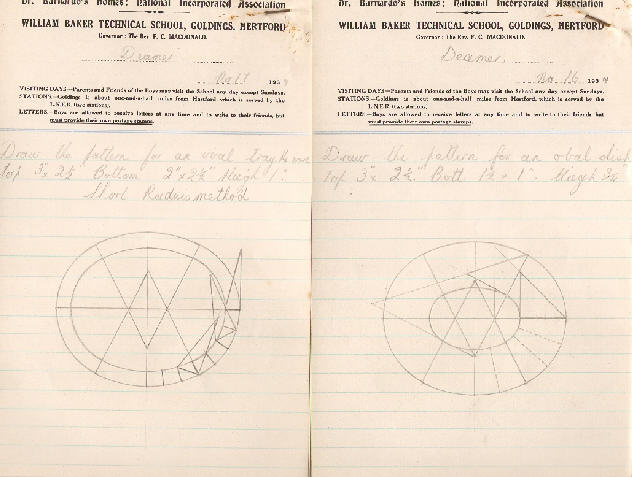 Dr. Barnardo's Homes: National Incorporated Association
WILLIAM BAKER TECHNICAL SCHOOL, GOLDINGS, HERTFORD
Governor: The Rev. F. C. MACDONALD.
Deamer
193
VISITING DAYS—Parents and Friends of the Boys may visit the School any day except Sundays.
STATIONS.—Goldings is about one-and-a-half miles from Hertford, which is served by the
L.N.E.R. (two stations).
LETTERS.—Boys are allowed to receive letters at any time and to write to their friends, but
must provide their own postage stamps.
Draw the pattern for an oval Tray
Top 3" x 2½ Bottom 2" x 2¼" Heigh 1".
Short Radius method
Dr. Barnardo's Homes: National Incorporated Association
WILLIAM BAKER TECHNICAL SCHOOL, GOLDINGS, HERTFORD
Governor: The Rev. F. C. MACDONALD.
Deamer
No. 16 193
VISITING DAYS—Parents and Friends of the Boys may visit the School any day except Sundays.
STATIONS.—Goldings is about one-and-a-half miles from Hertford, which is served by the
L.N.E.R. (two stations).
LETTERS.—Boys are allowed to receive letters at any time and to write to their friends, but
must provide their own postage stamps.
Draw the pattern for an oval dish
Top 3" x 2½" Bott 1" Heigh ¾